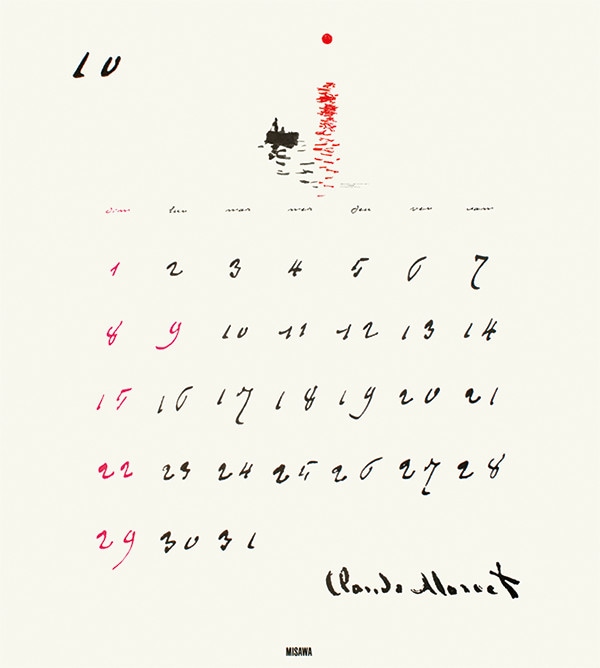 10
dim lun mar mer jeu ven sam
1 2 3 4 5 6 7
8 9 10 11 12 13 14
15 16 17 18 19 20 21
22 23 24 25 26 27 28
29 30 31
Claude Monet
MISAWA